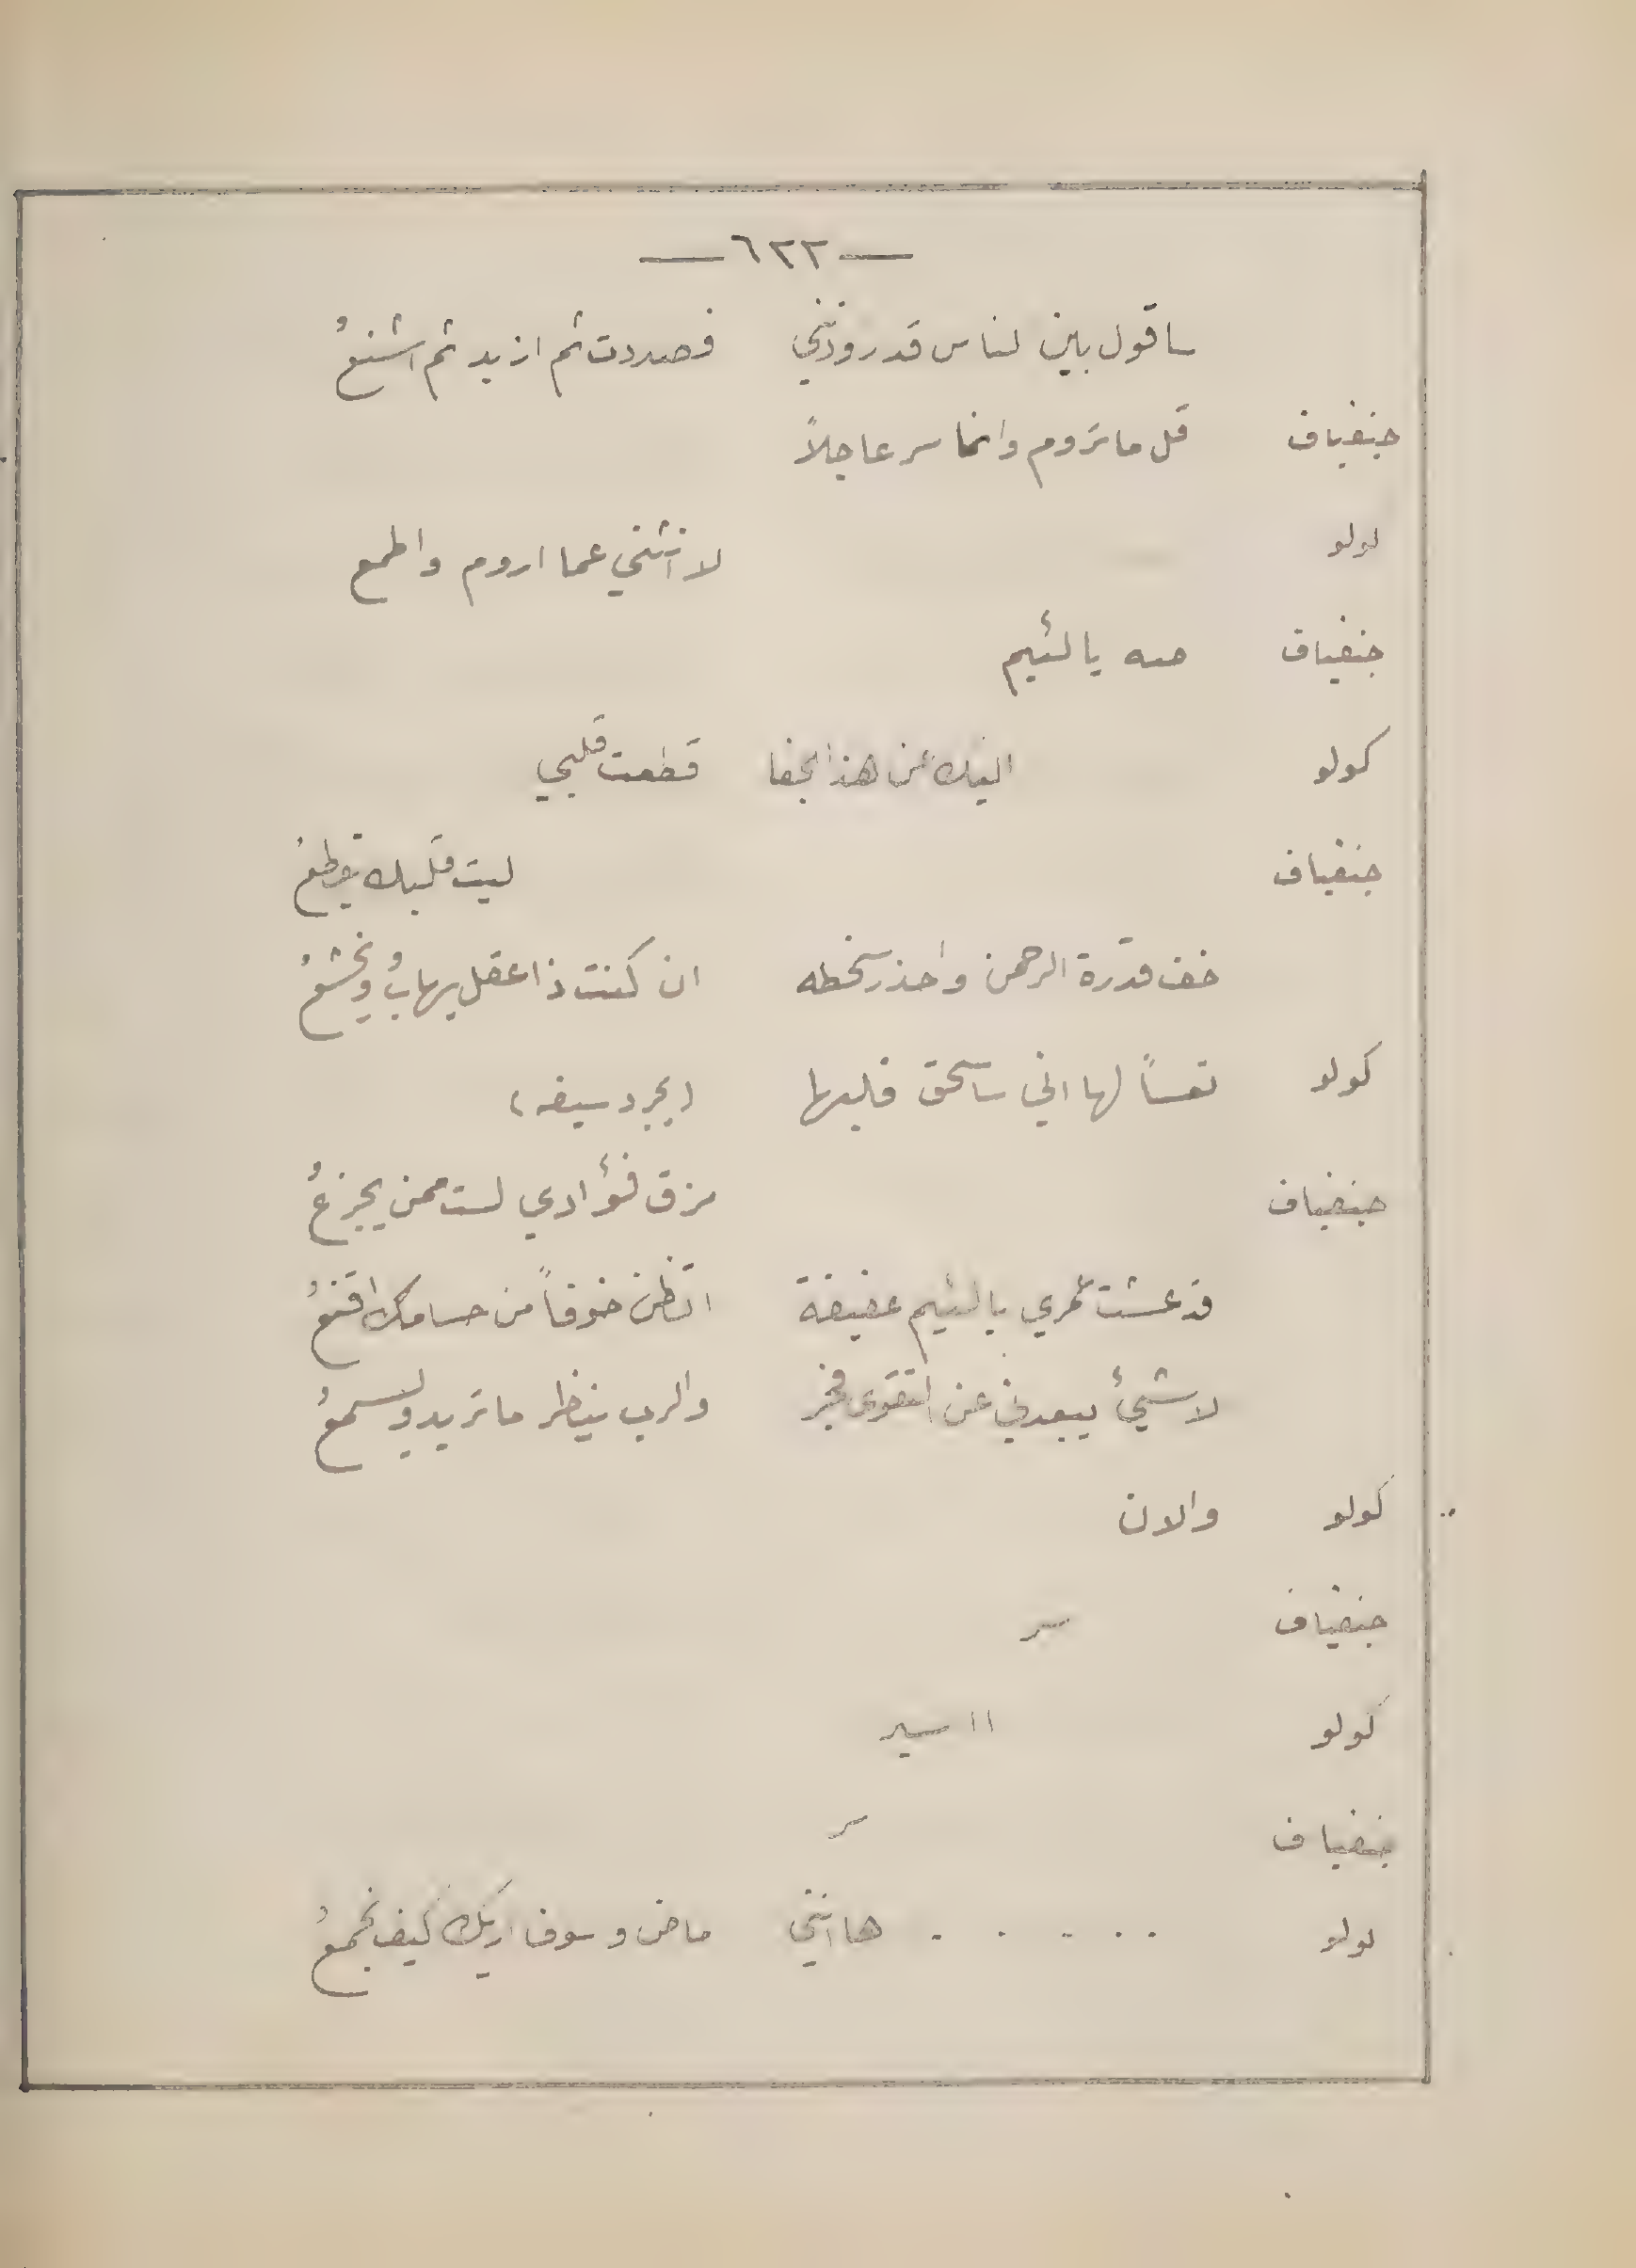 — ٦٢٢ —
ساقول بين الناس قد رودتني فصددت ثم ازيد ثم اشنعُ
جنفياف قل ما تروم وانما سر عاجلاً
لولو لا انثني عما اروم واطمع
جنفياف صه يا لئيم
كولو اليك عن هذا الجفا قطعت قلبي
جنفياف ليت قلبك يقطعُ
خف قدرة الرحمن واحذر سخطه ان كنت ذا عقل يهابُ ويخشعُ
كولو تعساً لها اني ساسحق قلبها (يجرد سيفه)
جنفياف مزق فؤادي لست ممن يجزعُ
قد عشت عمري يا لئيم عفيفة اتظن خوفاً من حسامك اقنعُ
لا شيئ يبعدني عن التقوى فجر والرب ينظر ما تريد ويسمعُ
كولو والان
جنفياف سر
كولو ااسير
جنفياف سر
لولو . . . . . . ها انني ماض وسوف اريك كيف نجمعُ